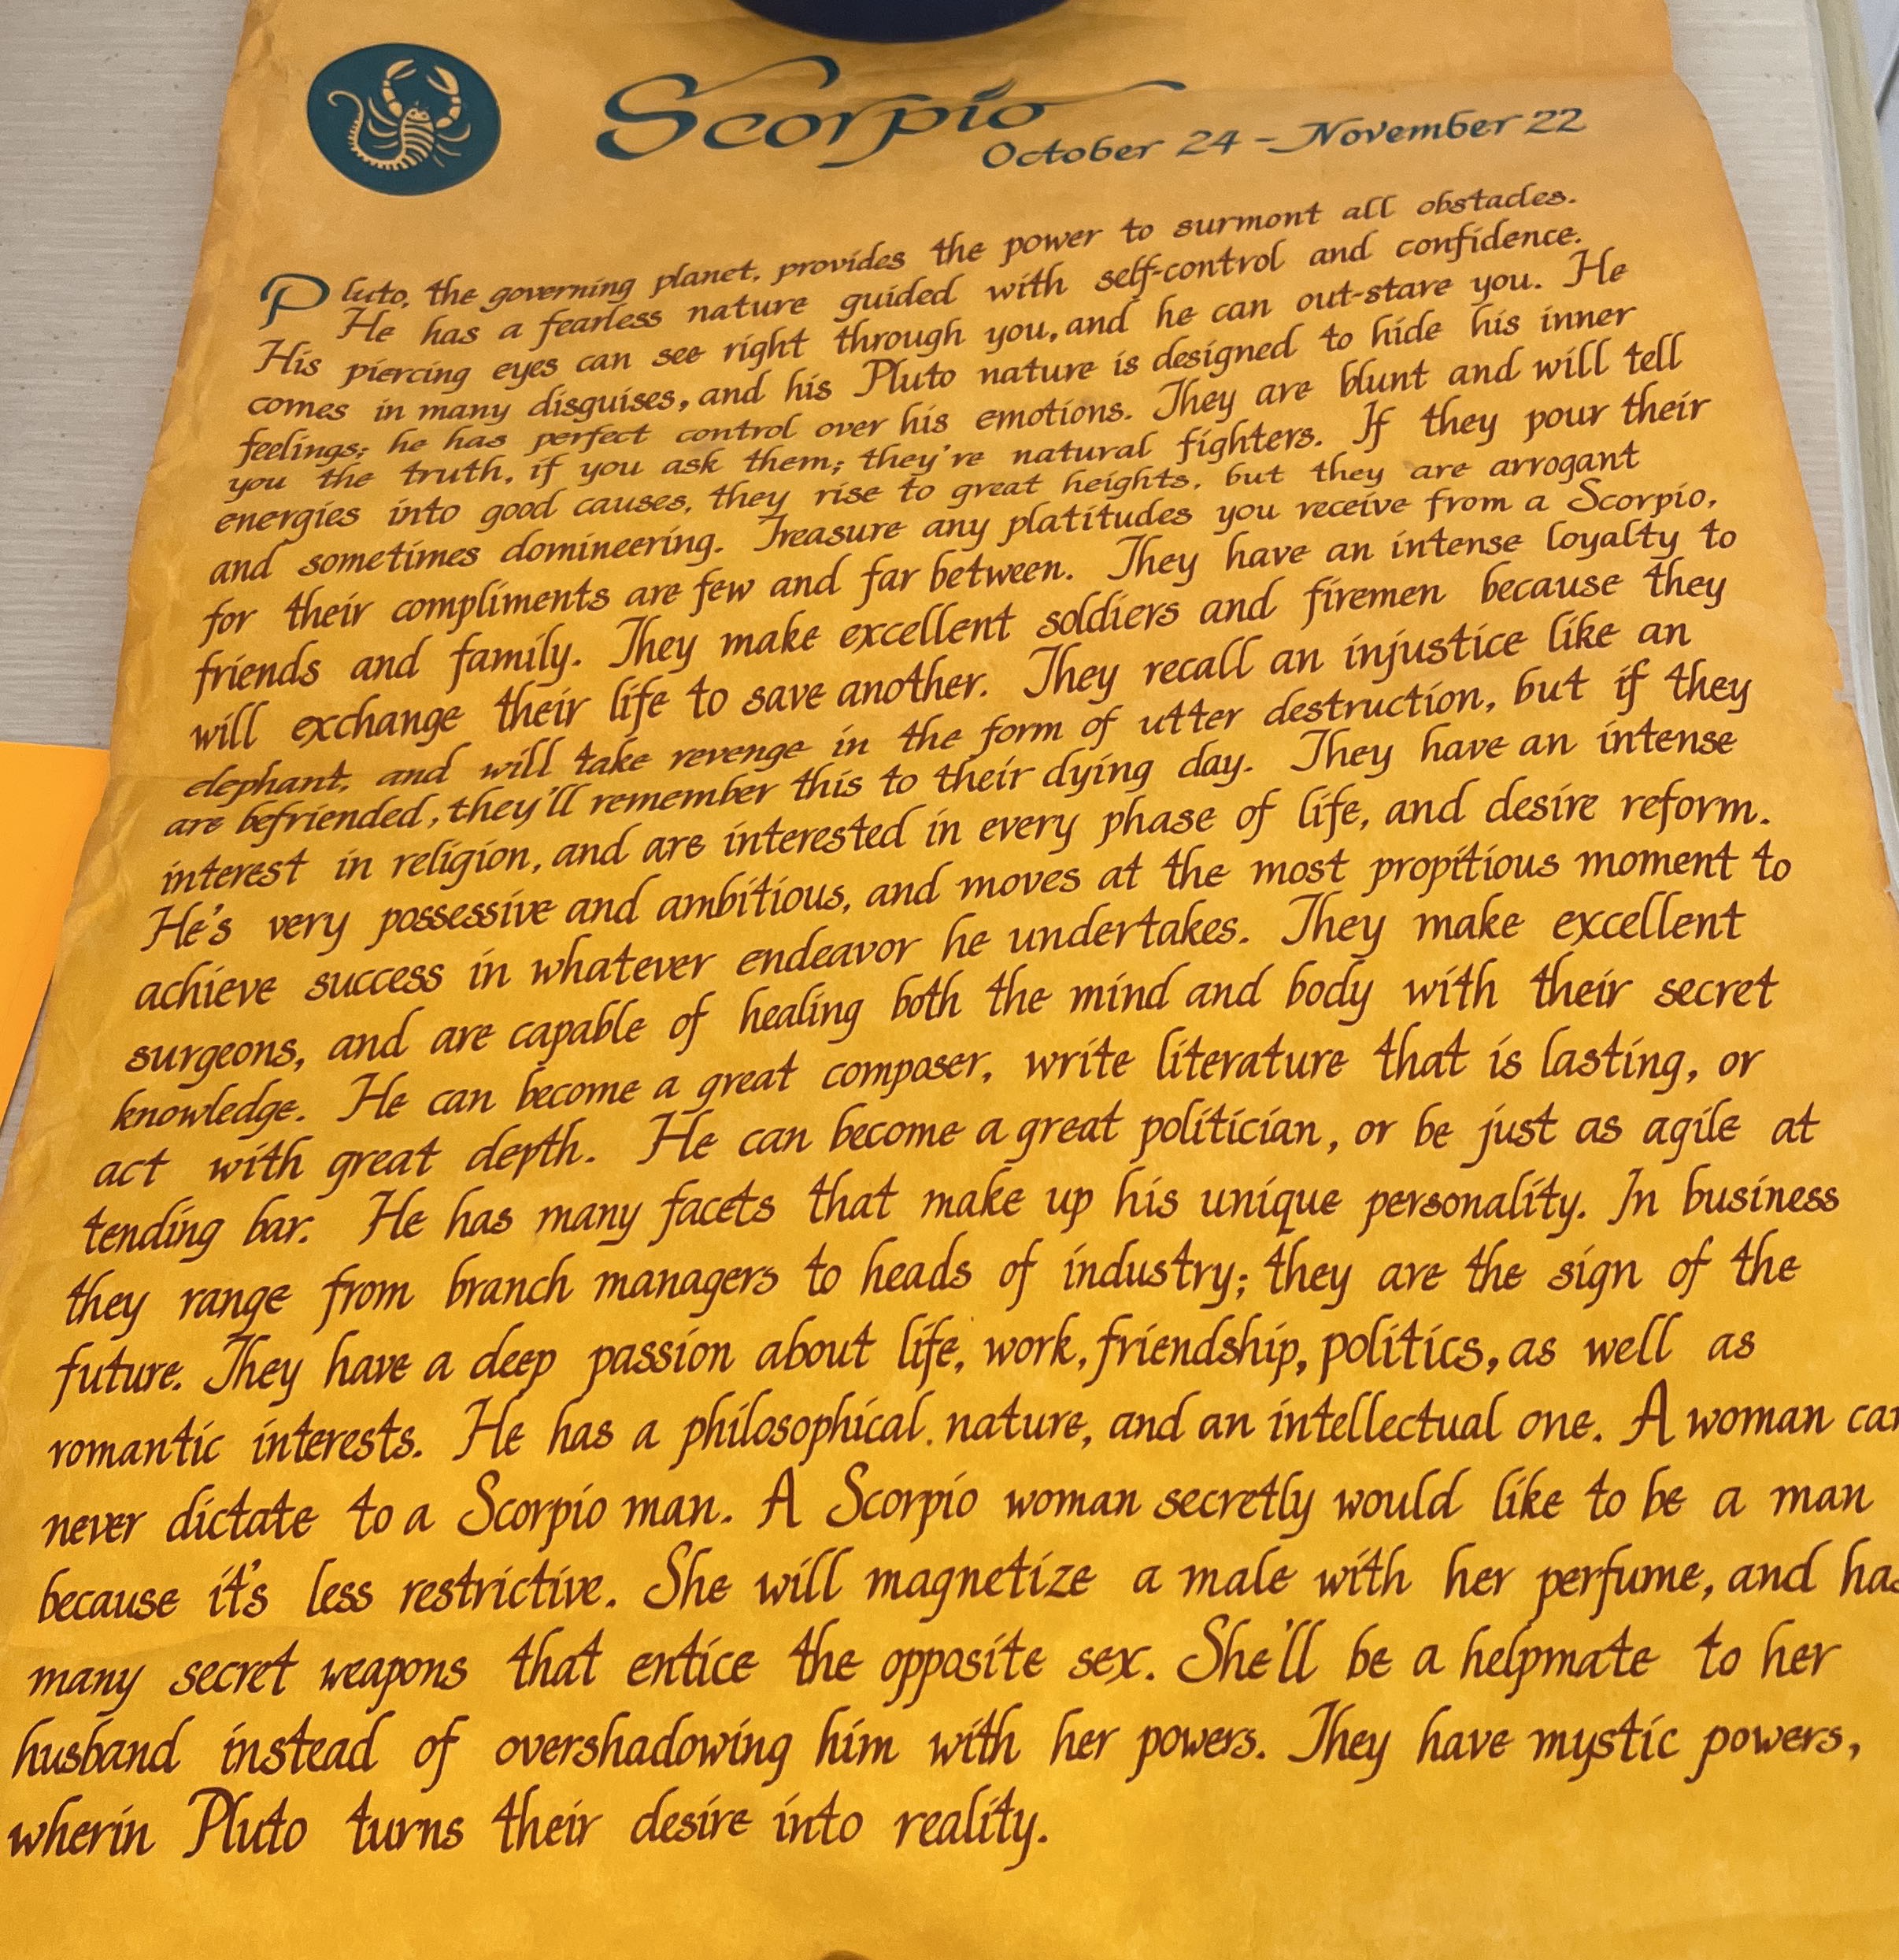 Scorpio
October 24 - November 22
Pluto, the governing planet, provides the power to surmont all obstacles.
He has a fearless nature guided with self-control and confidence.
His piercing eyes can see right through you, and he can out-stare you. He
comes in many disguises, and his Pluto nature is designed to hide his inner
feelings; he has perfect control over his emotions. They are blunt and will tell
you the truth, if you ask them; they're natural fighters. If they pour their
energies into good causes, they rise to great heights, but they are arrogant
and sometimes domineering. Treasure any platitudes you receive from a Scorpio,
for their compliments are few and far between. They have an intense loyalty to
friends and family. They make excellent soldiers and firemen because they
will exchange their life to save another. They recall an injustice like an
elephant, and will take revenge in the form of utter destruction, but if they
are befriended, they'll remember this to their dying day. They have an intense
interest in religion, and are interested in every phase of life, and desire reform.
He's very possessive and ambitious, and moves at the most propitious moment to
achieve success in whatever endeavor he undertakes. They make excellent
surgeons, and are capable of healing both the mind and body with their secret
knowledge. He can become a great composer, write literature that is lasting, or
act with great depth. He can become a great politician, or be just as agile at
tending bar. He has many facets that make up his unique personality. In business
they range from branch managers to heads of industry; they are the sign of the
future. They have a deep passion about life, work, friendship, politics, as well as
romantic interests. He has a philosophical. nature, and an intellectual one. A woman can
never dictate to a Scorpio man. A Scorpio woman secretly would like to be a man
because it's less restrictive. She will magnetize a male with her perfume, and has
many secret weapons that entice the opposite sex. She'll be a helpmate to her
husband instead of overshadowing him with her powers. They have mystic powers,
wherin Pluto turns their desire into reality.